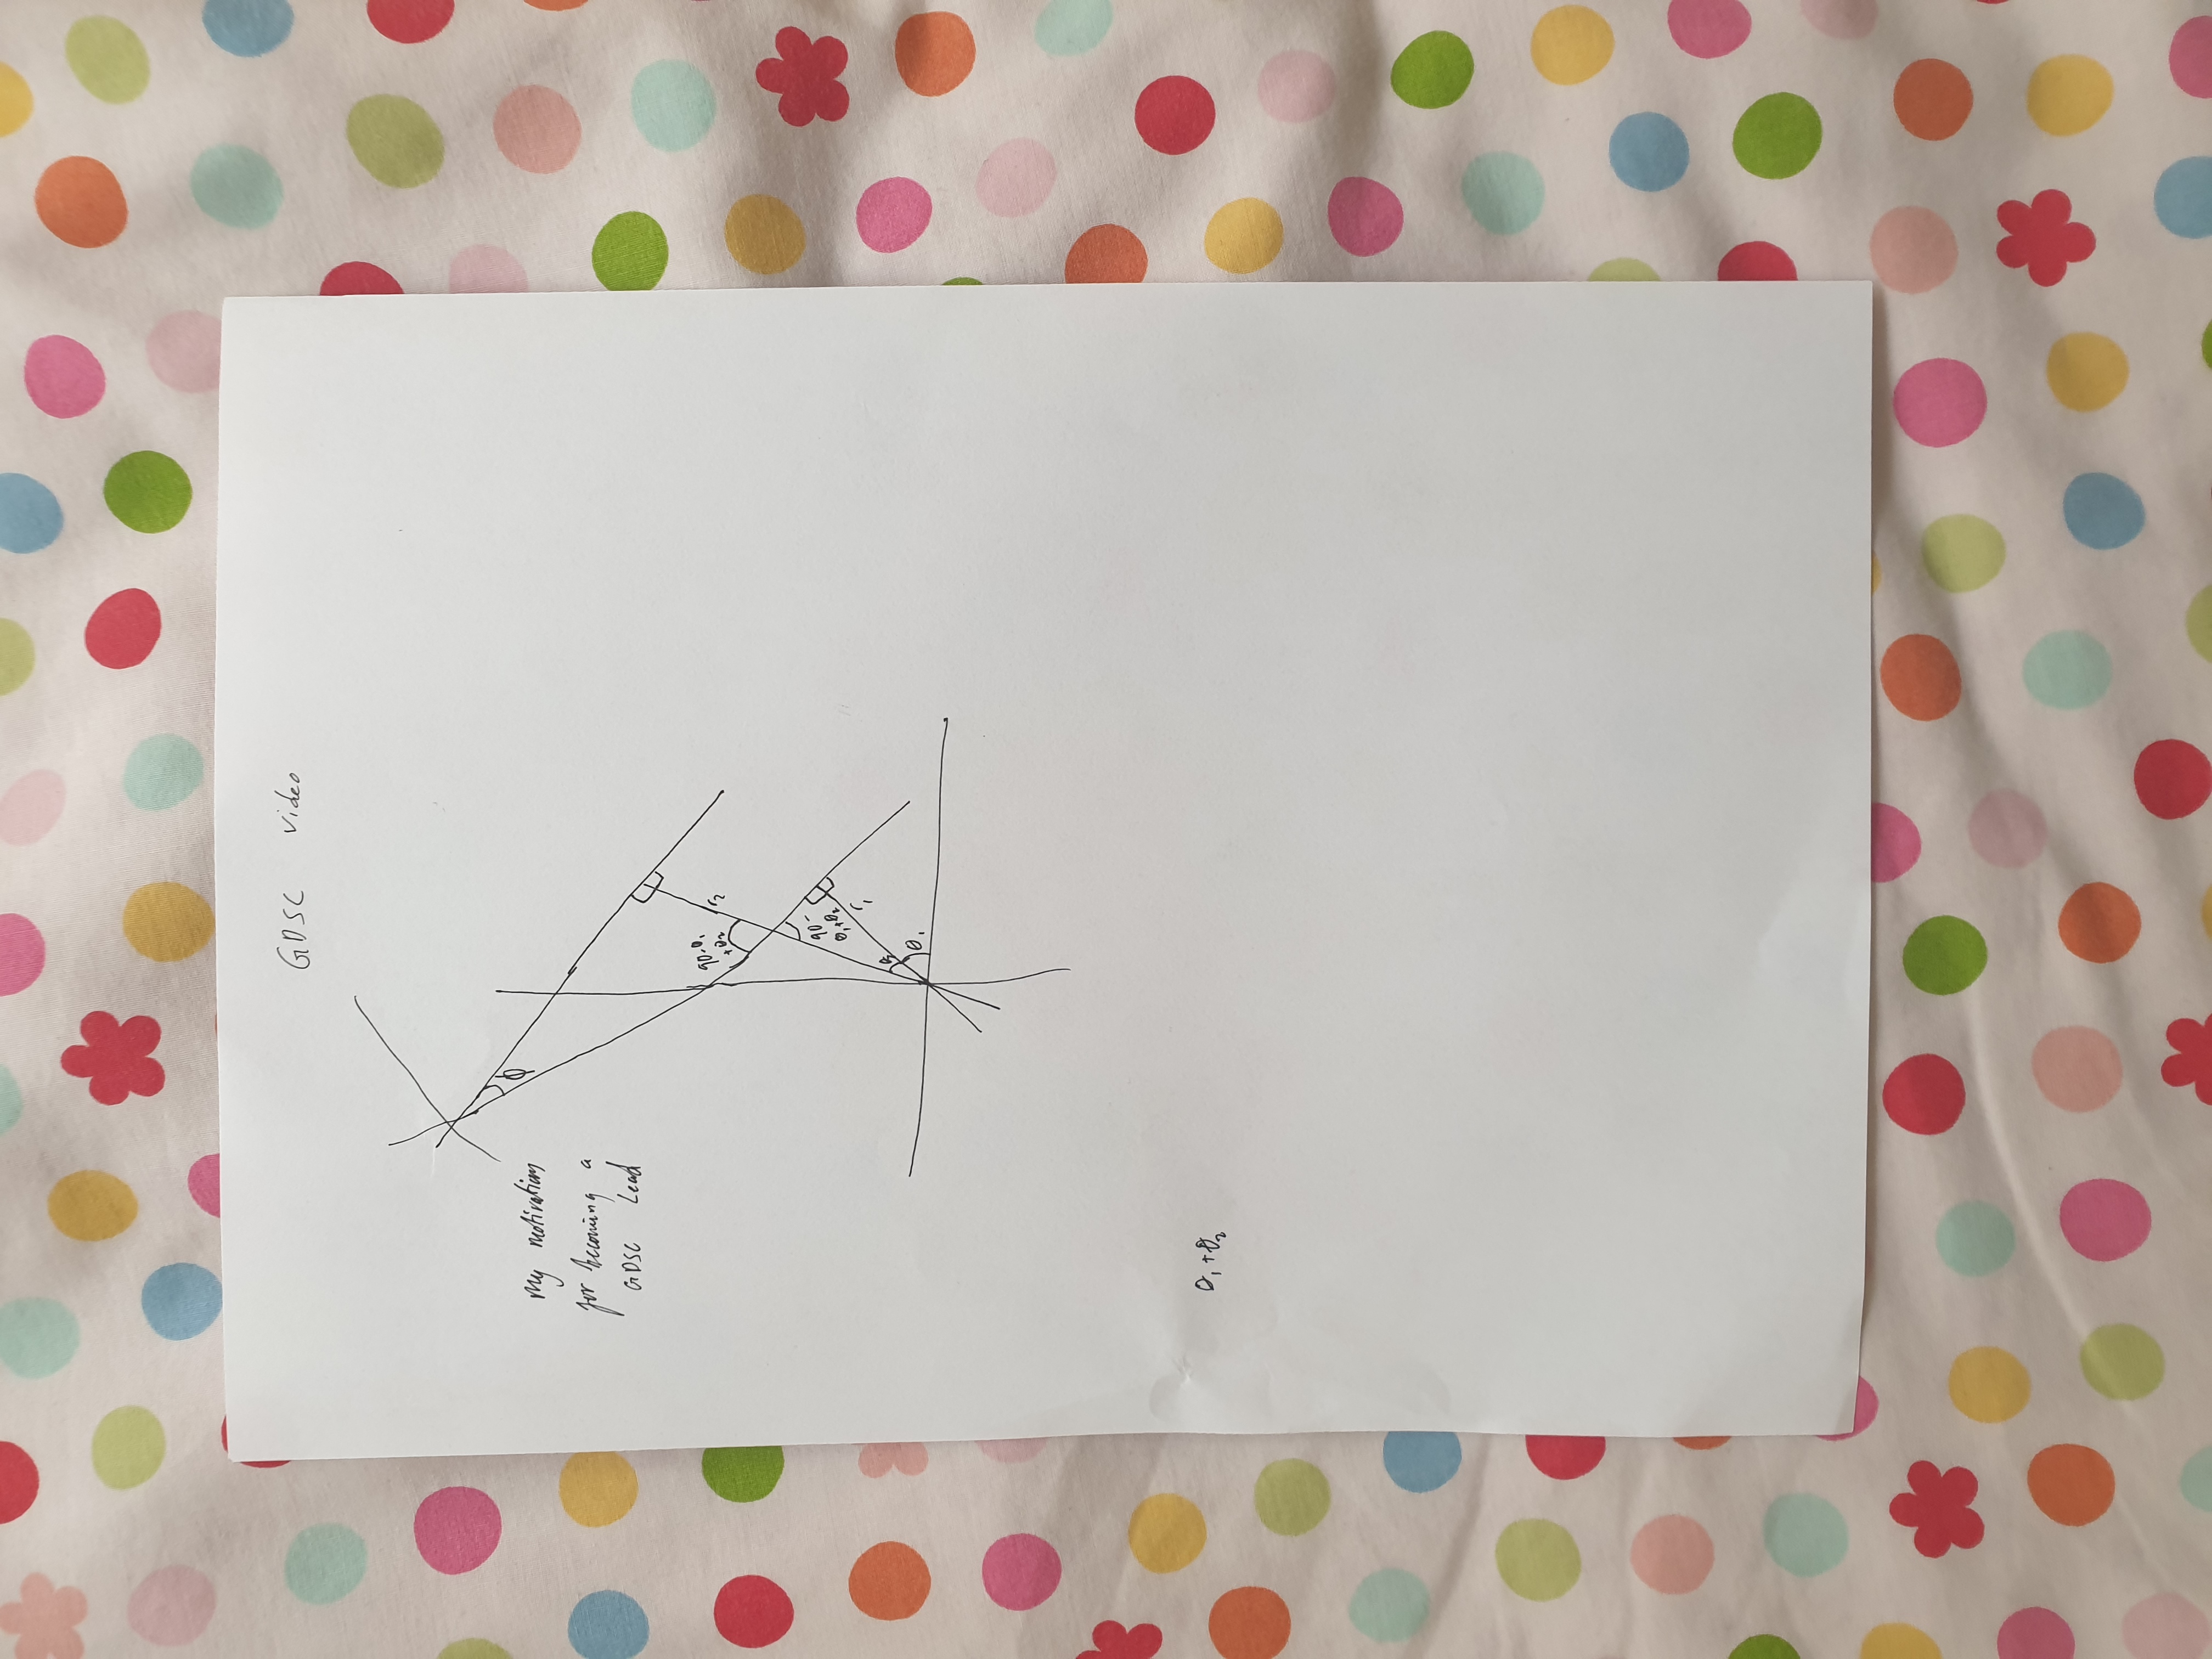 GDSC video
ϕ
My motivation
for becoming a
GDSC Lead
90-θ₁
+θ₂
r₂
90-
θ₁+θ₂
r₁
θ₁
θ₁+θ₂